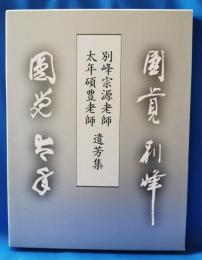 圓覚 別峰
別峰宗源老師
太年碩豊老師
遺芳集
圓覚 太年